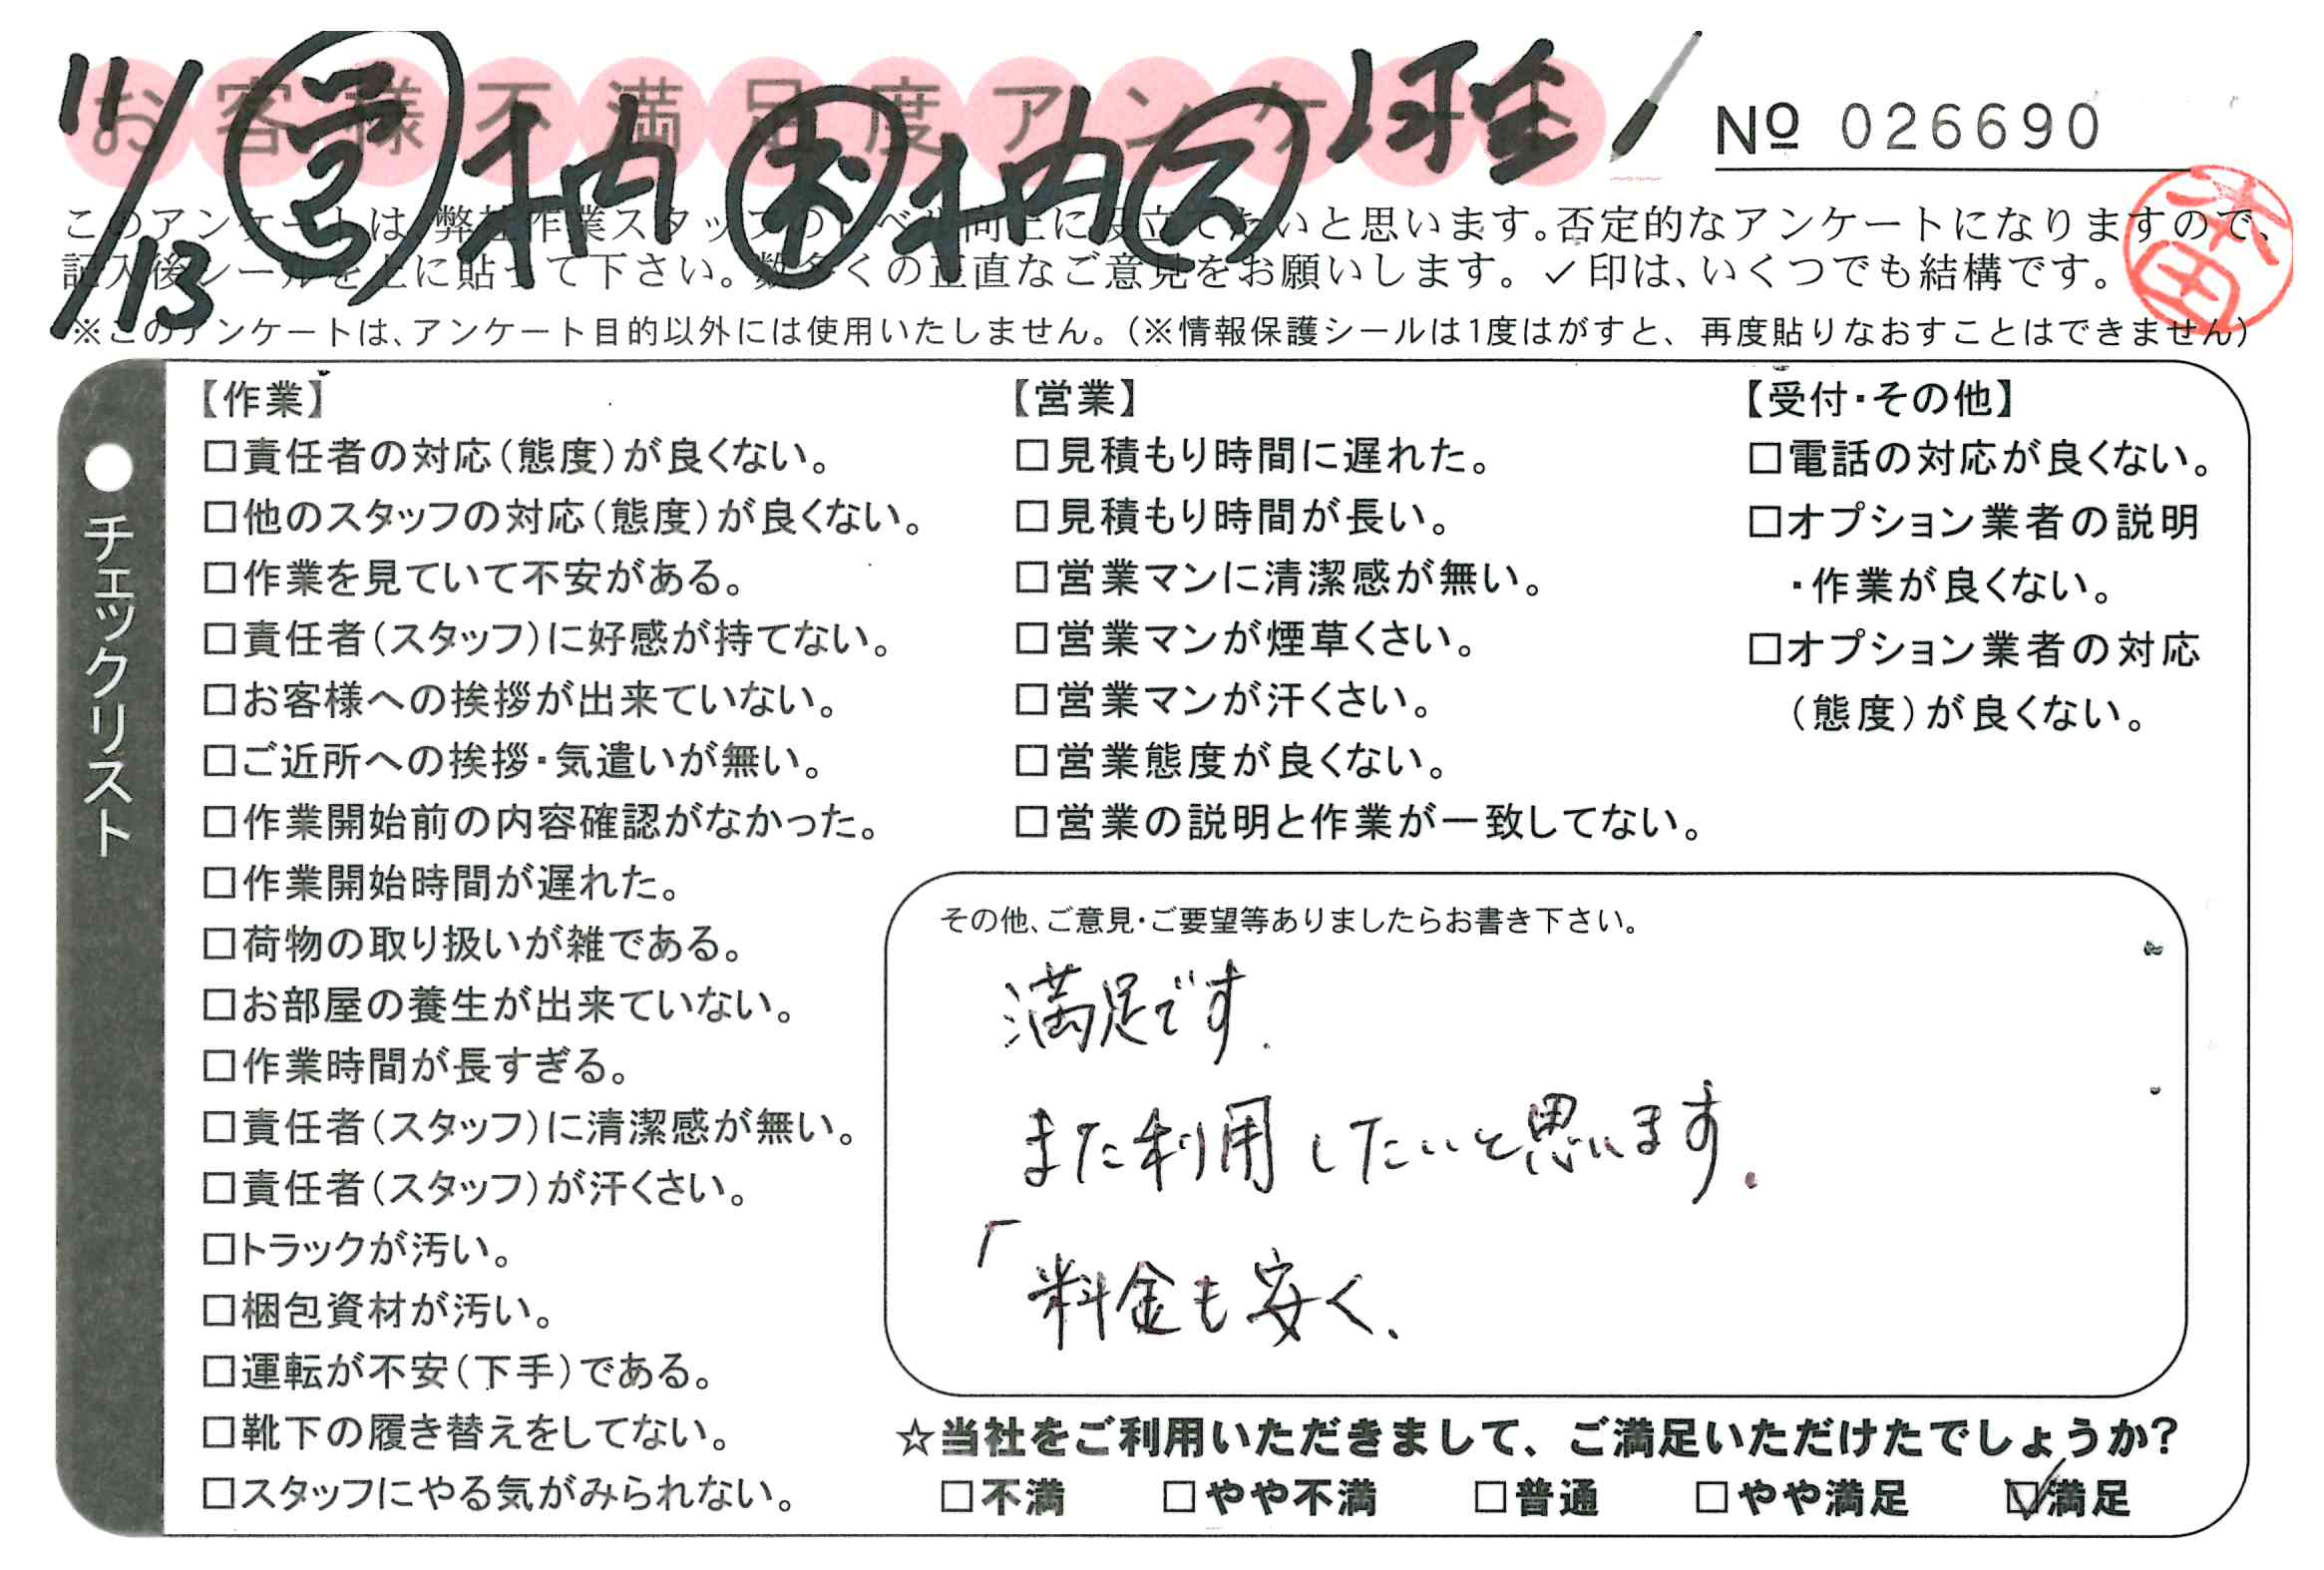 11/13
お客様不満足度アンケート
№ 026690
本田
このアンケートは、弊社作業スタッフのレベル向上に役立てたいと思います。否定的なアンケートになりますので、
記入後シールを上に貼って下さい。数多くの正直なご意見をお願いします。✓印は、いくつでも結構です。
※このアンケートは、アンケート目的以外には使用いたしません。（※情報保護シールは1度はがすと、再度貼りなおすことはできません）
●チェックリスト
【作業】
□責任者の対応（態度）が良くない。
□他のスタッフの対応（態度）が良くない。
□作業を見ていて不安がある。
□責任者（スタッフ）に好感が持てない。
□お客様への挨拶が出来ていない。
□ご近所への挨拶・気遣いが無い。
□作業開始前の内容確認がなかった。
□作業開始時間が遅れた。
□荷物の取り扱いが雑である。
□お部屋の養生が出来ていない。
□作業時間が長すぎる。
□責任者（スタッフ）に清潔感が無い。
□責任者（スタッフ）が汗くさい。
□トラックが汚い。
□梱包資材が汚い。
□運転が不安（下手）である。
□靴下の履き替えをしてない。
□スタッフにやる気がみられない。
【営業】
□見積もり時間に遅れた。
□見積もり時間が長い。
□営業マンに清潔感が無い。
□営業マンが煙草くさい。
□営業マンが汗くさい。
□営業態度が良くない。
□営業の説明と作業が一致してない。
【受付・その他】
□電話の対応が良くない。
□オプション業者の説明
・作業が良くない。
□オプション業者の対応
（態度）が良くない。
その他、ご意見・ご要望等ありましたらお書き下さい。
満足です.
また利用したいと思います。
「料金も安く、
☆当社をご利用いただきまして、ご満足いただけたでしょうか？
□不満 □やや不満 □普通 □やや満足 ☑満足